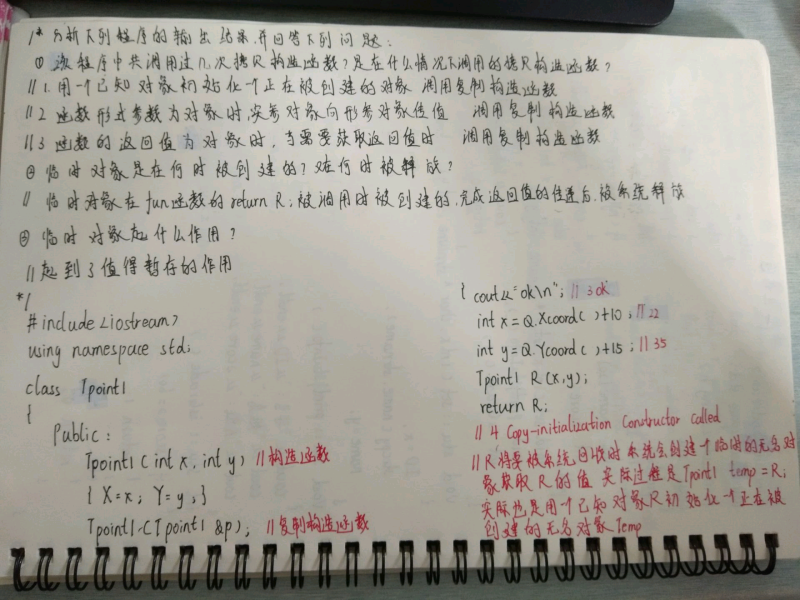 /* 分析下列程序的输出结果,并回答下列问题:
① 该程序中共调用过几次拷贝构造函数?是在什么情况下调用的拷贝构造函数?
// 1. 用一个已知对象初始化一个正在被创建的对象 调用复制构造函数
// 2 函数形式参数为对象时,实参对象向形参对象传值 调用复制构造函数
// 3 函数的返回值为对象时,当需要获取返回值时 调用复制构造函数
② 临时对象是在何时被创建的?又在何时被释放?
// 临时对象在fun函数的return R;被调用时被创建的,完成返回值的传递后,被系统释放
③ 临时对象起什么作用?
// 起到了值得暂存的作用
*/
#include <iostream>
using namespace std;
class Tpoint1
{
Public:
Tpoint1(int x, int y) //构造函数
{ X=x; Y=y; }
Tpoint1(Tpoint1 &p); //复制构造函数
{ cout<<"ok\n"; // 3 ok
int x = Q.Xcoord()+10; // 22
int y = Q.Ycoord()+15; // 35
Tpoint1 R(x,y);
return R;
// 4 Copy-initialization Constructor called
// R将要被系统回收时系统会创建一个临时的无名对
象获取R的值 实际过程是Tpoint1 temp=R;
实际也是用一个已知对象R初始化一个正在被
创建的无名对象Temp